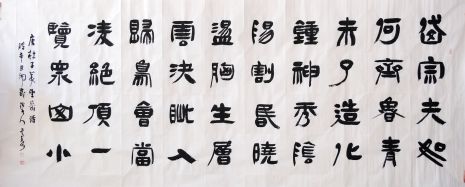 岱宗夫如
何齊魯青
未了造化
鍾神秀陰
陽割昬曉
盪胸生層
雲決眦入
歸鳥會當
凌絕頂一
覽眾山小
唐杜子美望岳詩